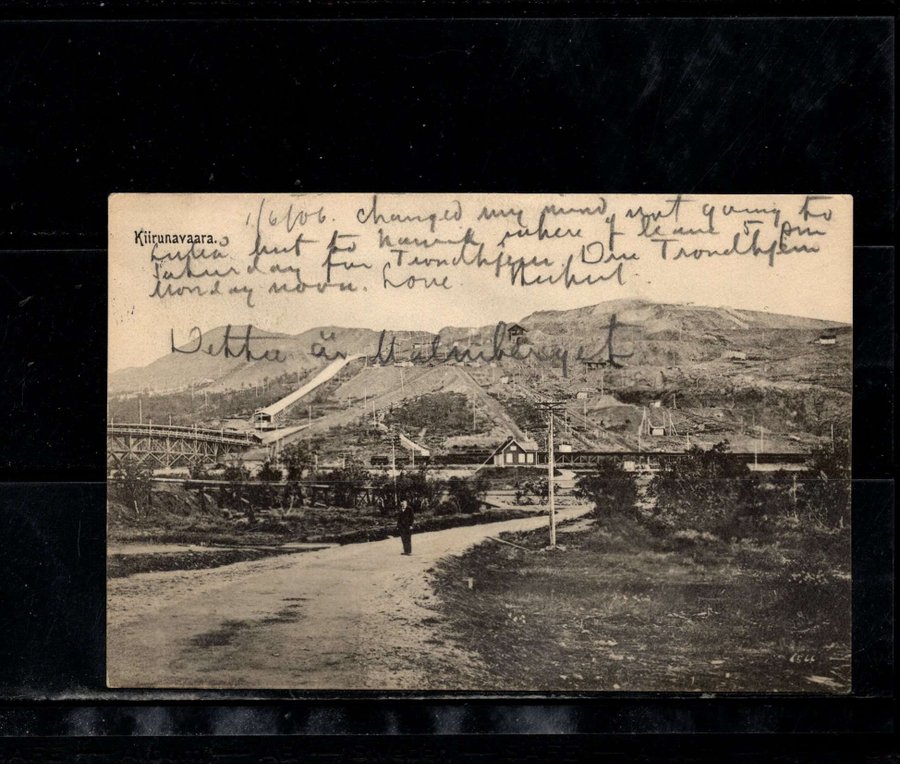 1/6/06. changed my mind, not going to
Kiirunavaara.
Luleå but to Narvik where I leave 5 pm
Saturday for Trondhjem. Due Trondhjem
Monday noon. Love
Dette är Malmberget
654